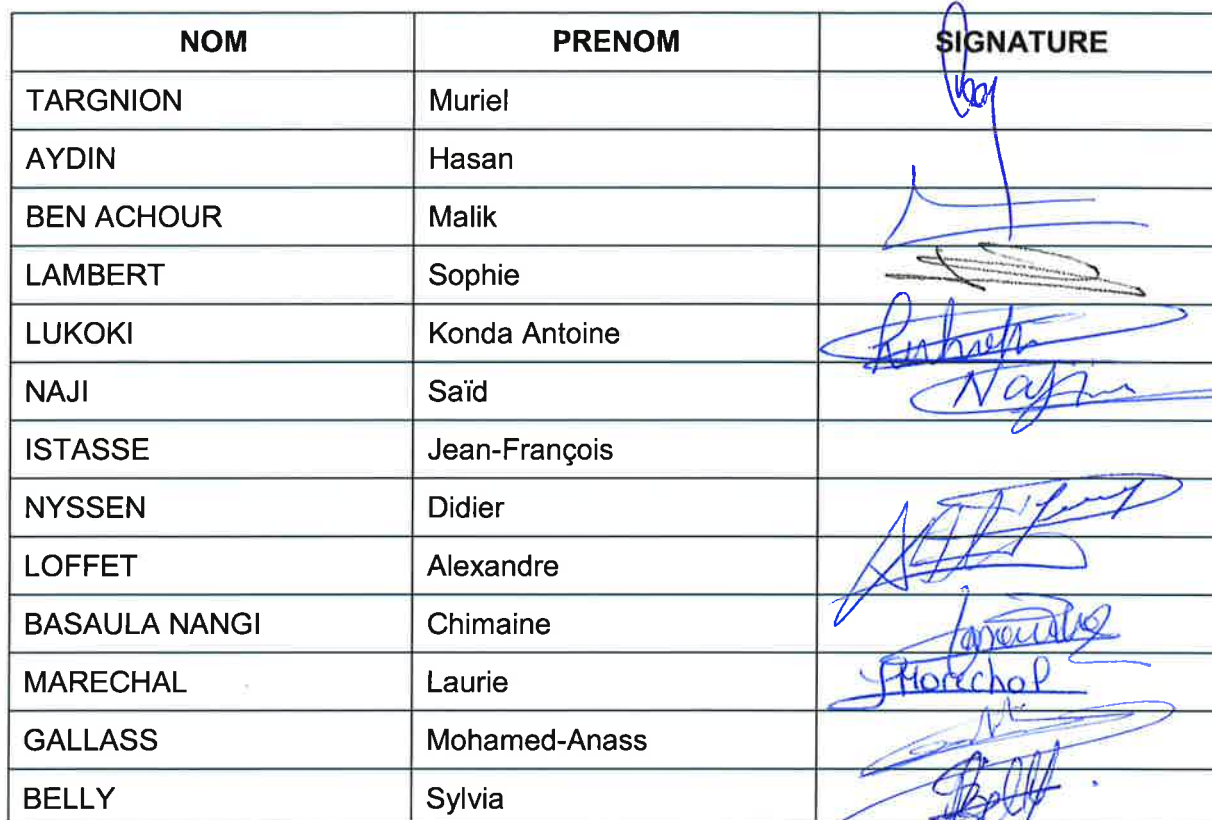 NOM PRENOM SIGNATURE
TARGNION Muriel
AYDIN Hasan
BEN ACHOUR Malik
LAMBERT Sophie
LUKOKI Konda Antoine
NAJI Saïd Naji
ISTASSE Jean-François
NYSSEN Didier
LOFFET Alexandre
BASAULA NANGI Chimaine
MARECHAL Laurie Marechal
GALLASS Mohamed-Anass
BELLY Sylvia